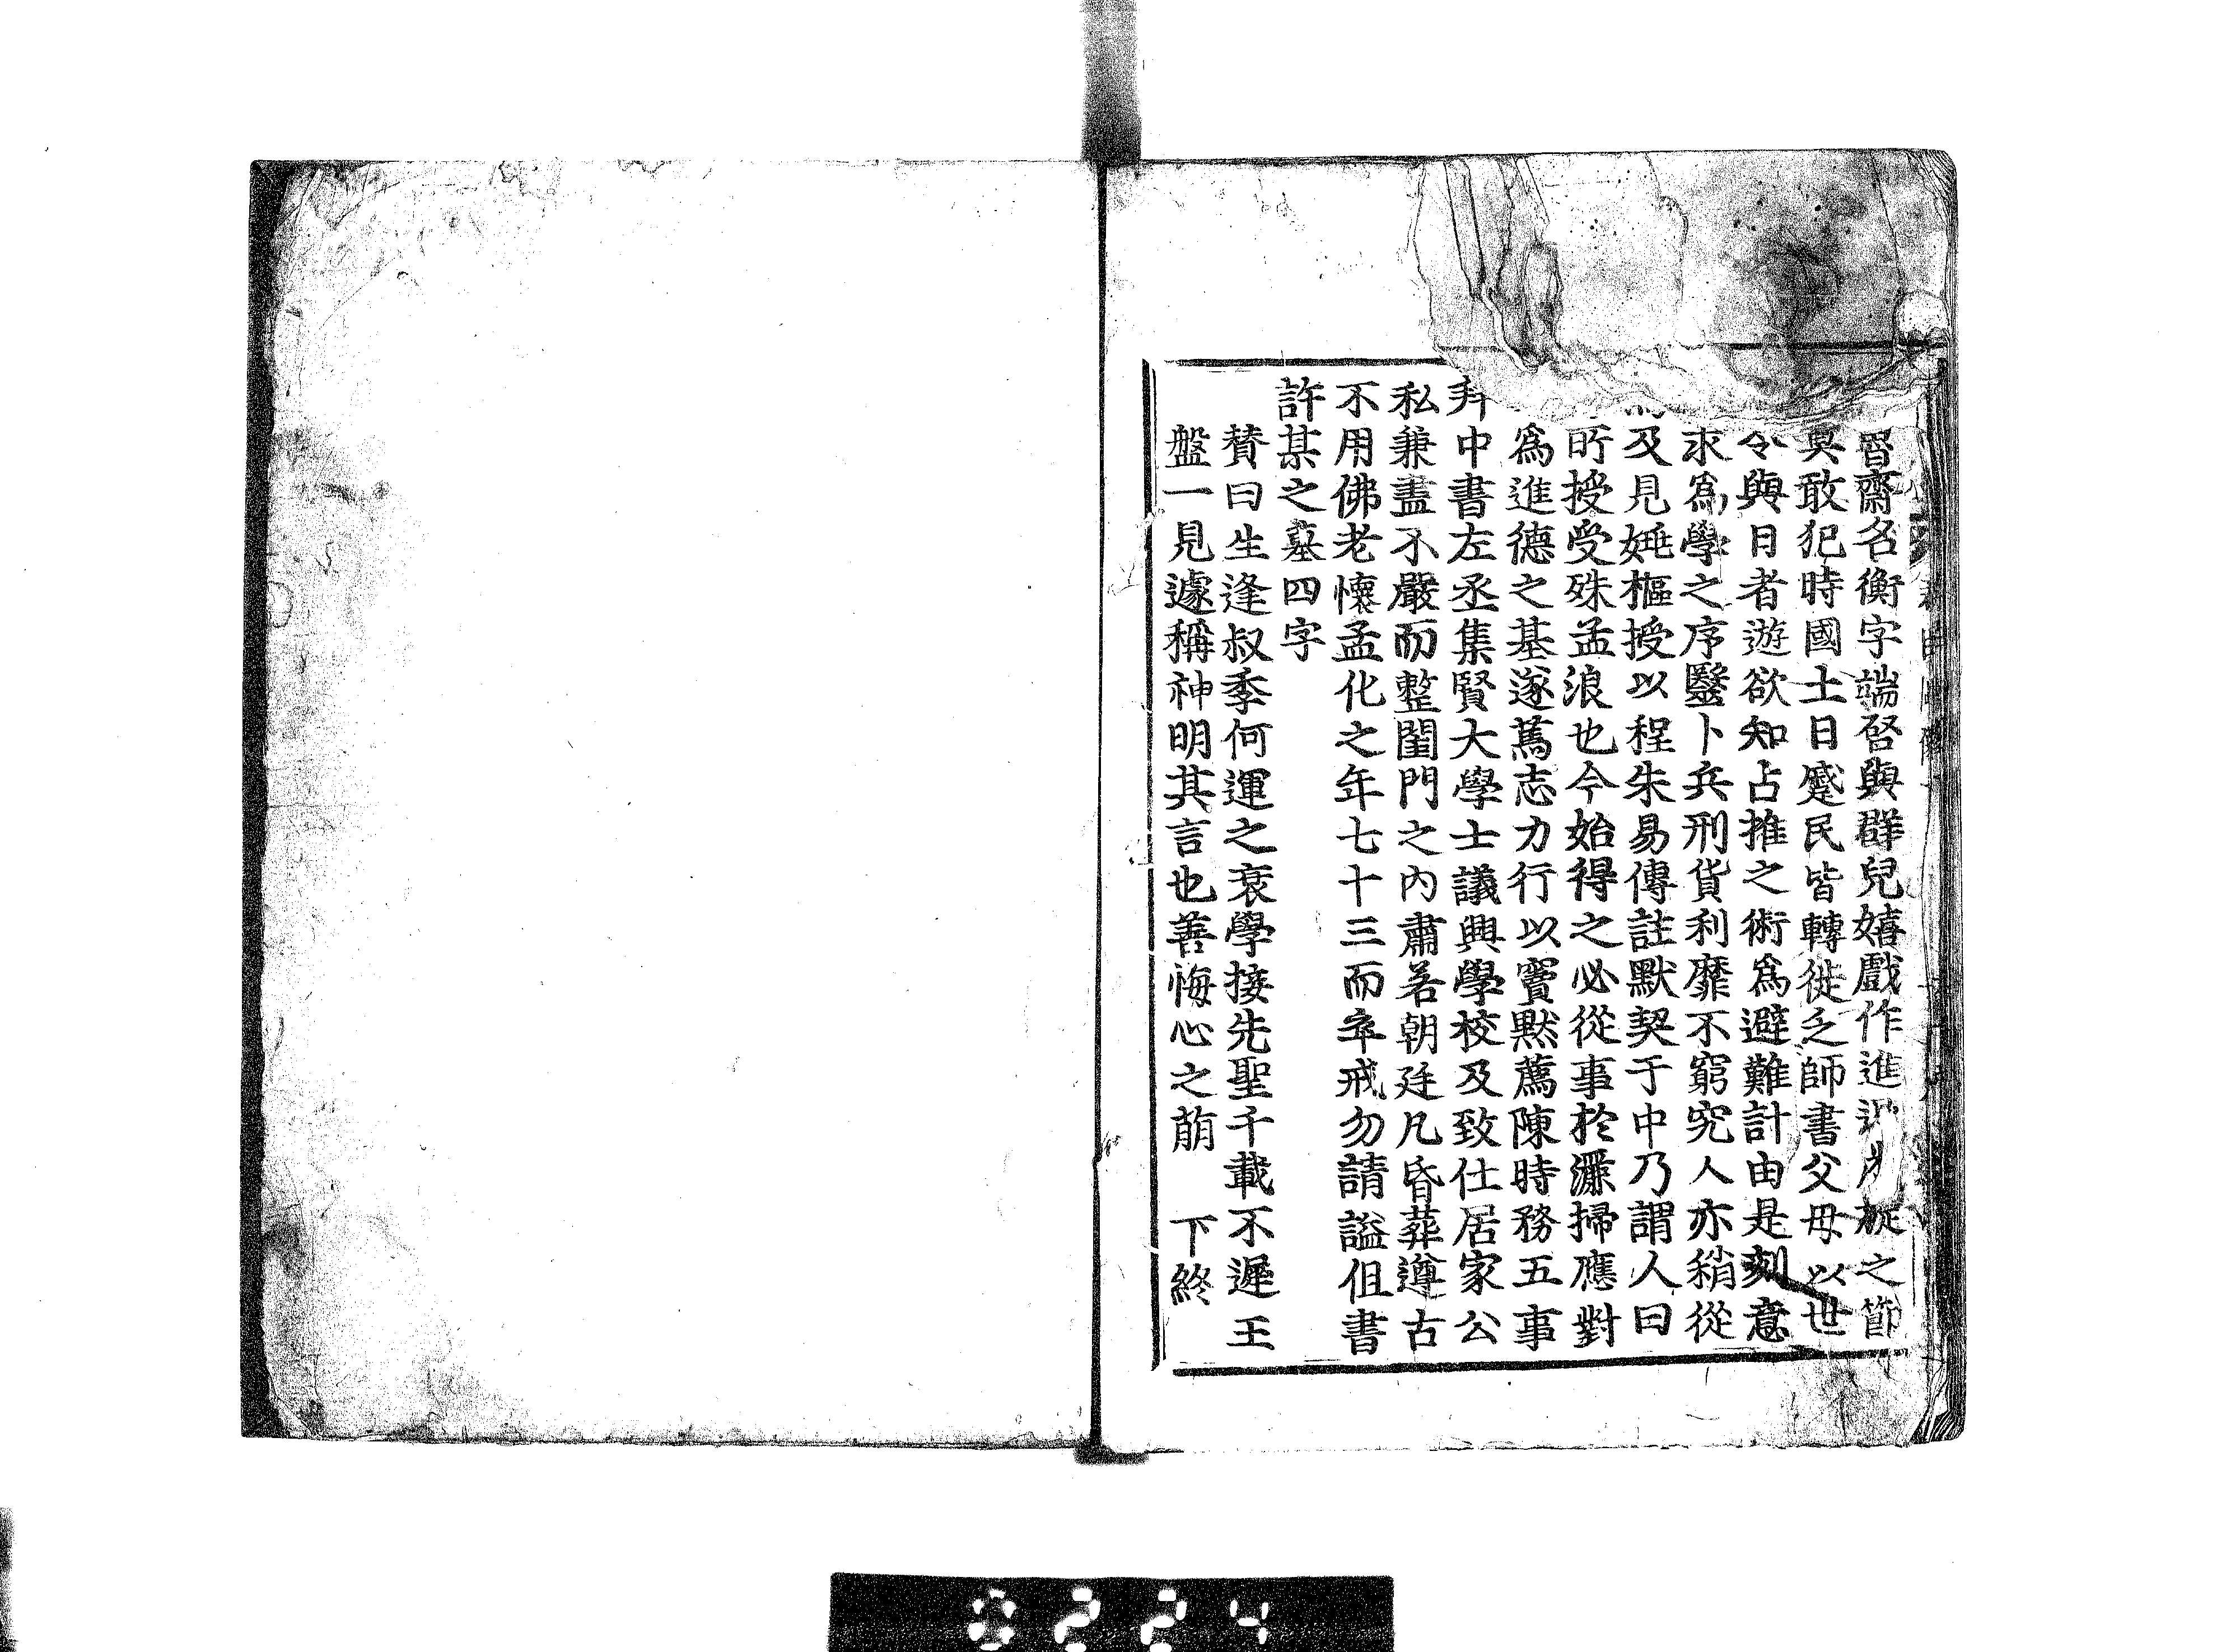 齋名衡字端啓與群兒嬉戲作進之節
敢犯時國士日蹙民皆轉徙乏師書父母以世
令與日者遊欲知占推之術爲避難計由是刻意
求爲學之序毉卜兵刑貨利靡不窮究人亦稍從
及見姚樞授以程朱易傳註默契于中乃謂人曰
所授受殊孟浪也今始得之必從事於灑掃應對
爲進德之基遂篤志力行以竇黙薦陳時務五事
拜中書左丞集賢大學士議興學校及致仕居家公
私兼盡不嚴而整閨門之內肅若朝廷凡昏葬遵古
不用佛老懷孟化之年七十三而卒戒勿請謚但書
許某之墓四字
賛曰生逢叔季何運之衰學接先聖千載不遲王
盤一見遽稱神明其言也善悔心之萠　下終
0224